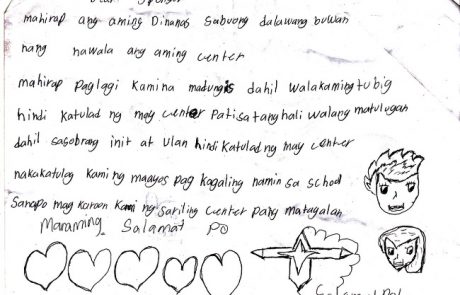 mahirap ang aming Dinanas sabuong dalawang buwan
nang nawala ang aming center
mahirap paglagi kamina madungis dahil walakamingtubig
hindi katulad ng may center patisatanghali walang matulugan
dahil sasobrang init at ulan hindi katulad ng may center
nakakatulog kaming maayos pag kagaling namin sa school
Sanapo mag karoon kami ng sariling center pang matagalan
Maraming Salamat Po